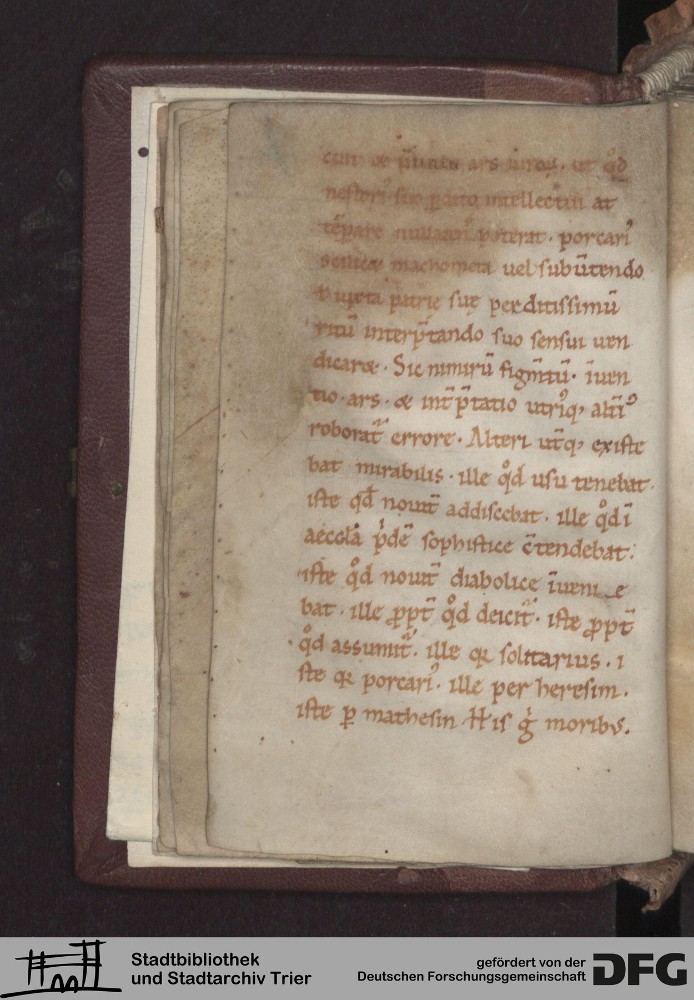 ars ut qͦd
intellectū at
tēpare poterat · porcariꝰ
machometa uel subūtendo
iuxta patrie suę perditissimū
ritū interp̄tando suo sensui uen
dicaræ · Sic nimirū figm̄tū · īuen
tio · ars · & int̄p̄tatio utriꝰq;
roborat̄ errore · Alteri ut̄q; existe
bat mirabilis · ille qͦd usu tenebat ·
iste qd̄ nouit̄ addiscebat · ille qͦd ī
accola p̓dē sophistice c̄tendebat ·
iste qͦd nouit̄ diabolice īueni e
bat · ille ꝓpt̄ qͦd deicit̄ · iste ꝓpt̄
qͦd assumit̄ · ille qꝛ solitarius · i
ste qꝛ porcariꝰ · ille per heresim ·
iste ꝑ mathesin · His g̓ moribꝰ ·
Stadtbibliothek
und Stadtarchiv Trier
gefördert von der
Deutschen Forschungsgemeinschaft
DFG